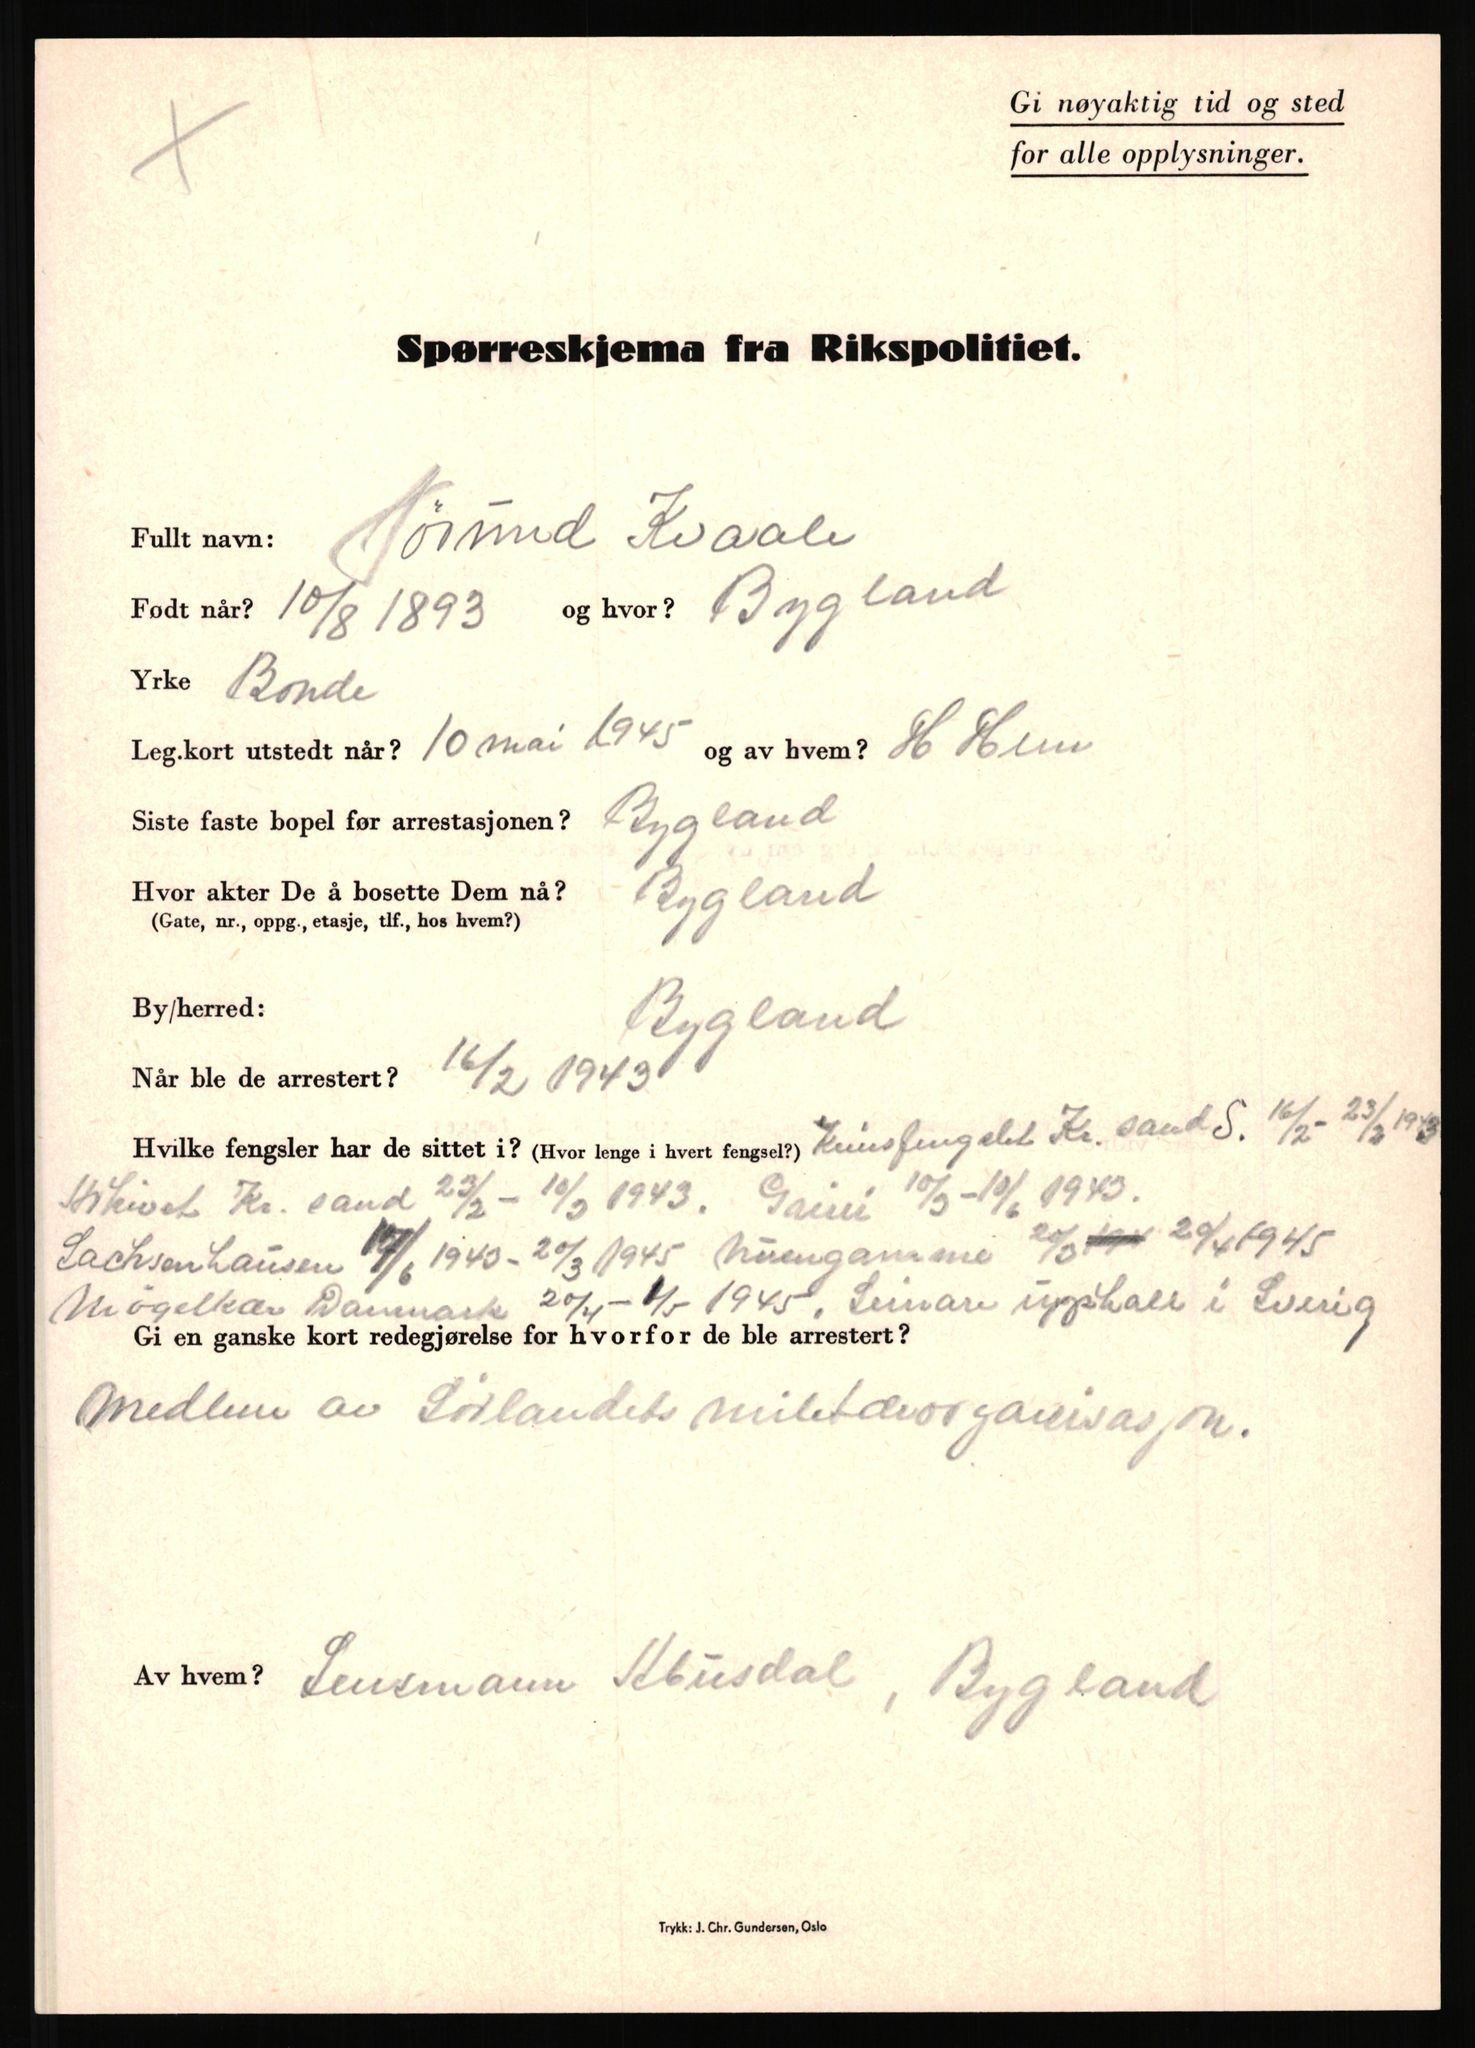 Gi nøyaktig tid og sted
for alle opplysninger.
Spørreskjema fra Rikspolitiet.
Fullt navn: Jörund Kvaale
Født når? 10/8 1893 og hvor? Bygland
Yrke Bonde
Leg.kort utstedt når? 10 mai 1945 og av hvem? H Hem
Siste faste bopel før arrestasjonen? Bygland
Hvor akter De å bosette Dem nå? Bygland
(Gate, nr., oppg., etasje, tlf., hos hvem?)
By/herred: Bygland
Når ble de arrestert? 16/2 1943
Hvilke fengsler har de sittet i? (Hvor lenge i hvert fengsel?) Kretsfengslet Kr. sand S. 16/2 - 23/2 1943
Arkivet Kr. sand 23/2 - 10/3 1943. Grini 10/3 - 10/6 1943.
Sachsenhausen 10/6 1943 - 20/3 1945 Nuengamme 20/3 20/4 1945
Mögelkær Danmark 20/4 - 1/5 1945. Seinare upphald i Sverig
Gi en ganske kort redegjørelse for hvorfor de ble arrestert?
Medlem av Sörlandets militærorganisasjon.
Av hvem? Lensmann Ubusdal, Bygland
Trykk: J. Chr. Gundersen, Oslo